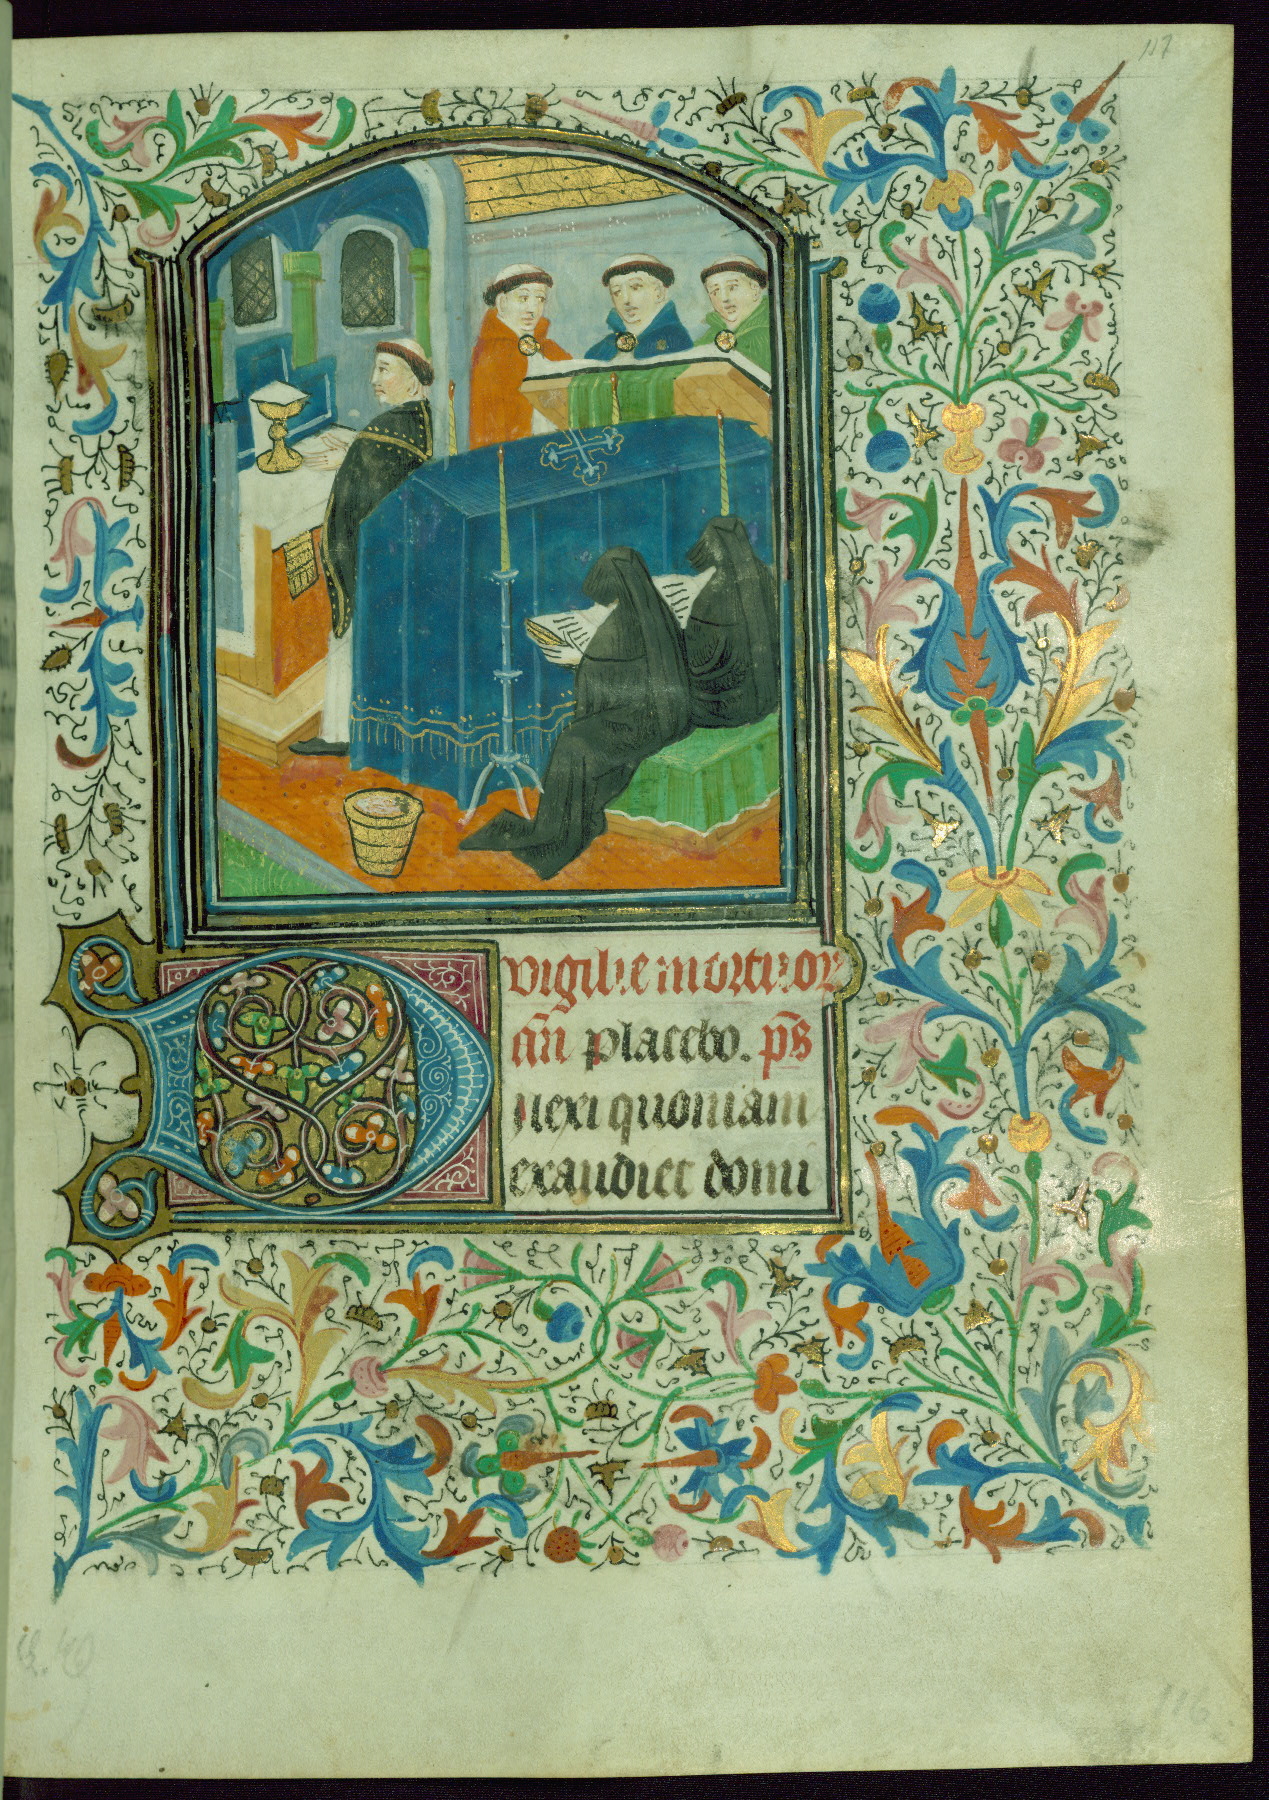 117
Dvigilie mortuor
an̄ placebo. ps̄
ilexi quoniam
exaudiet domi
116